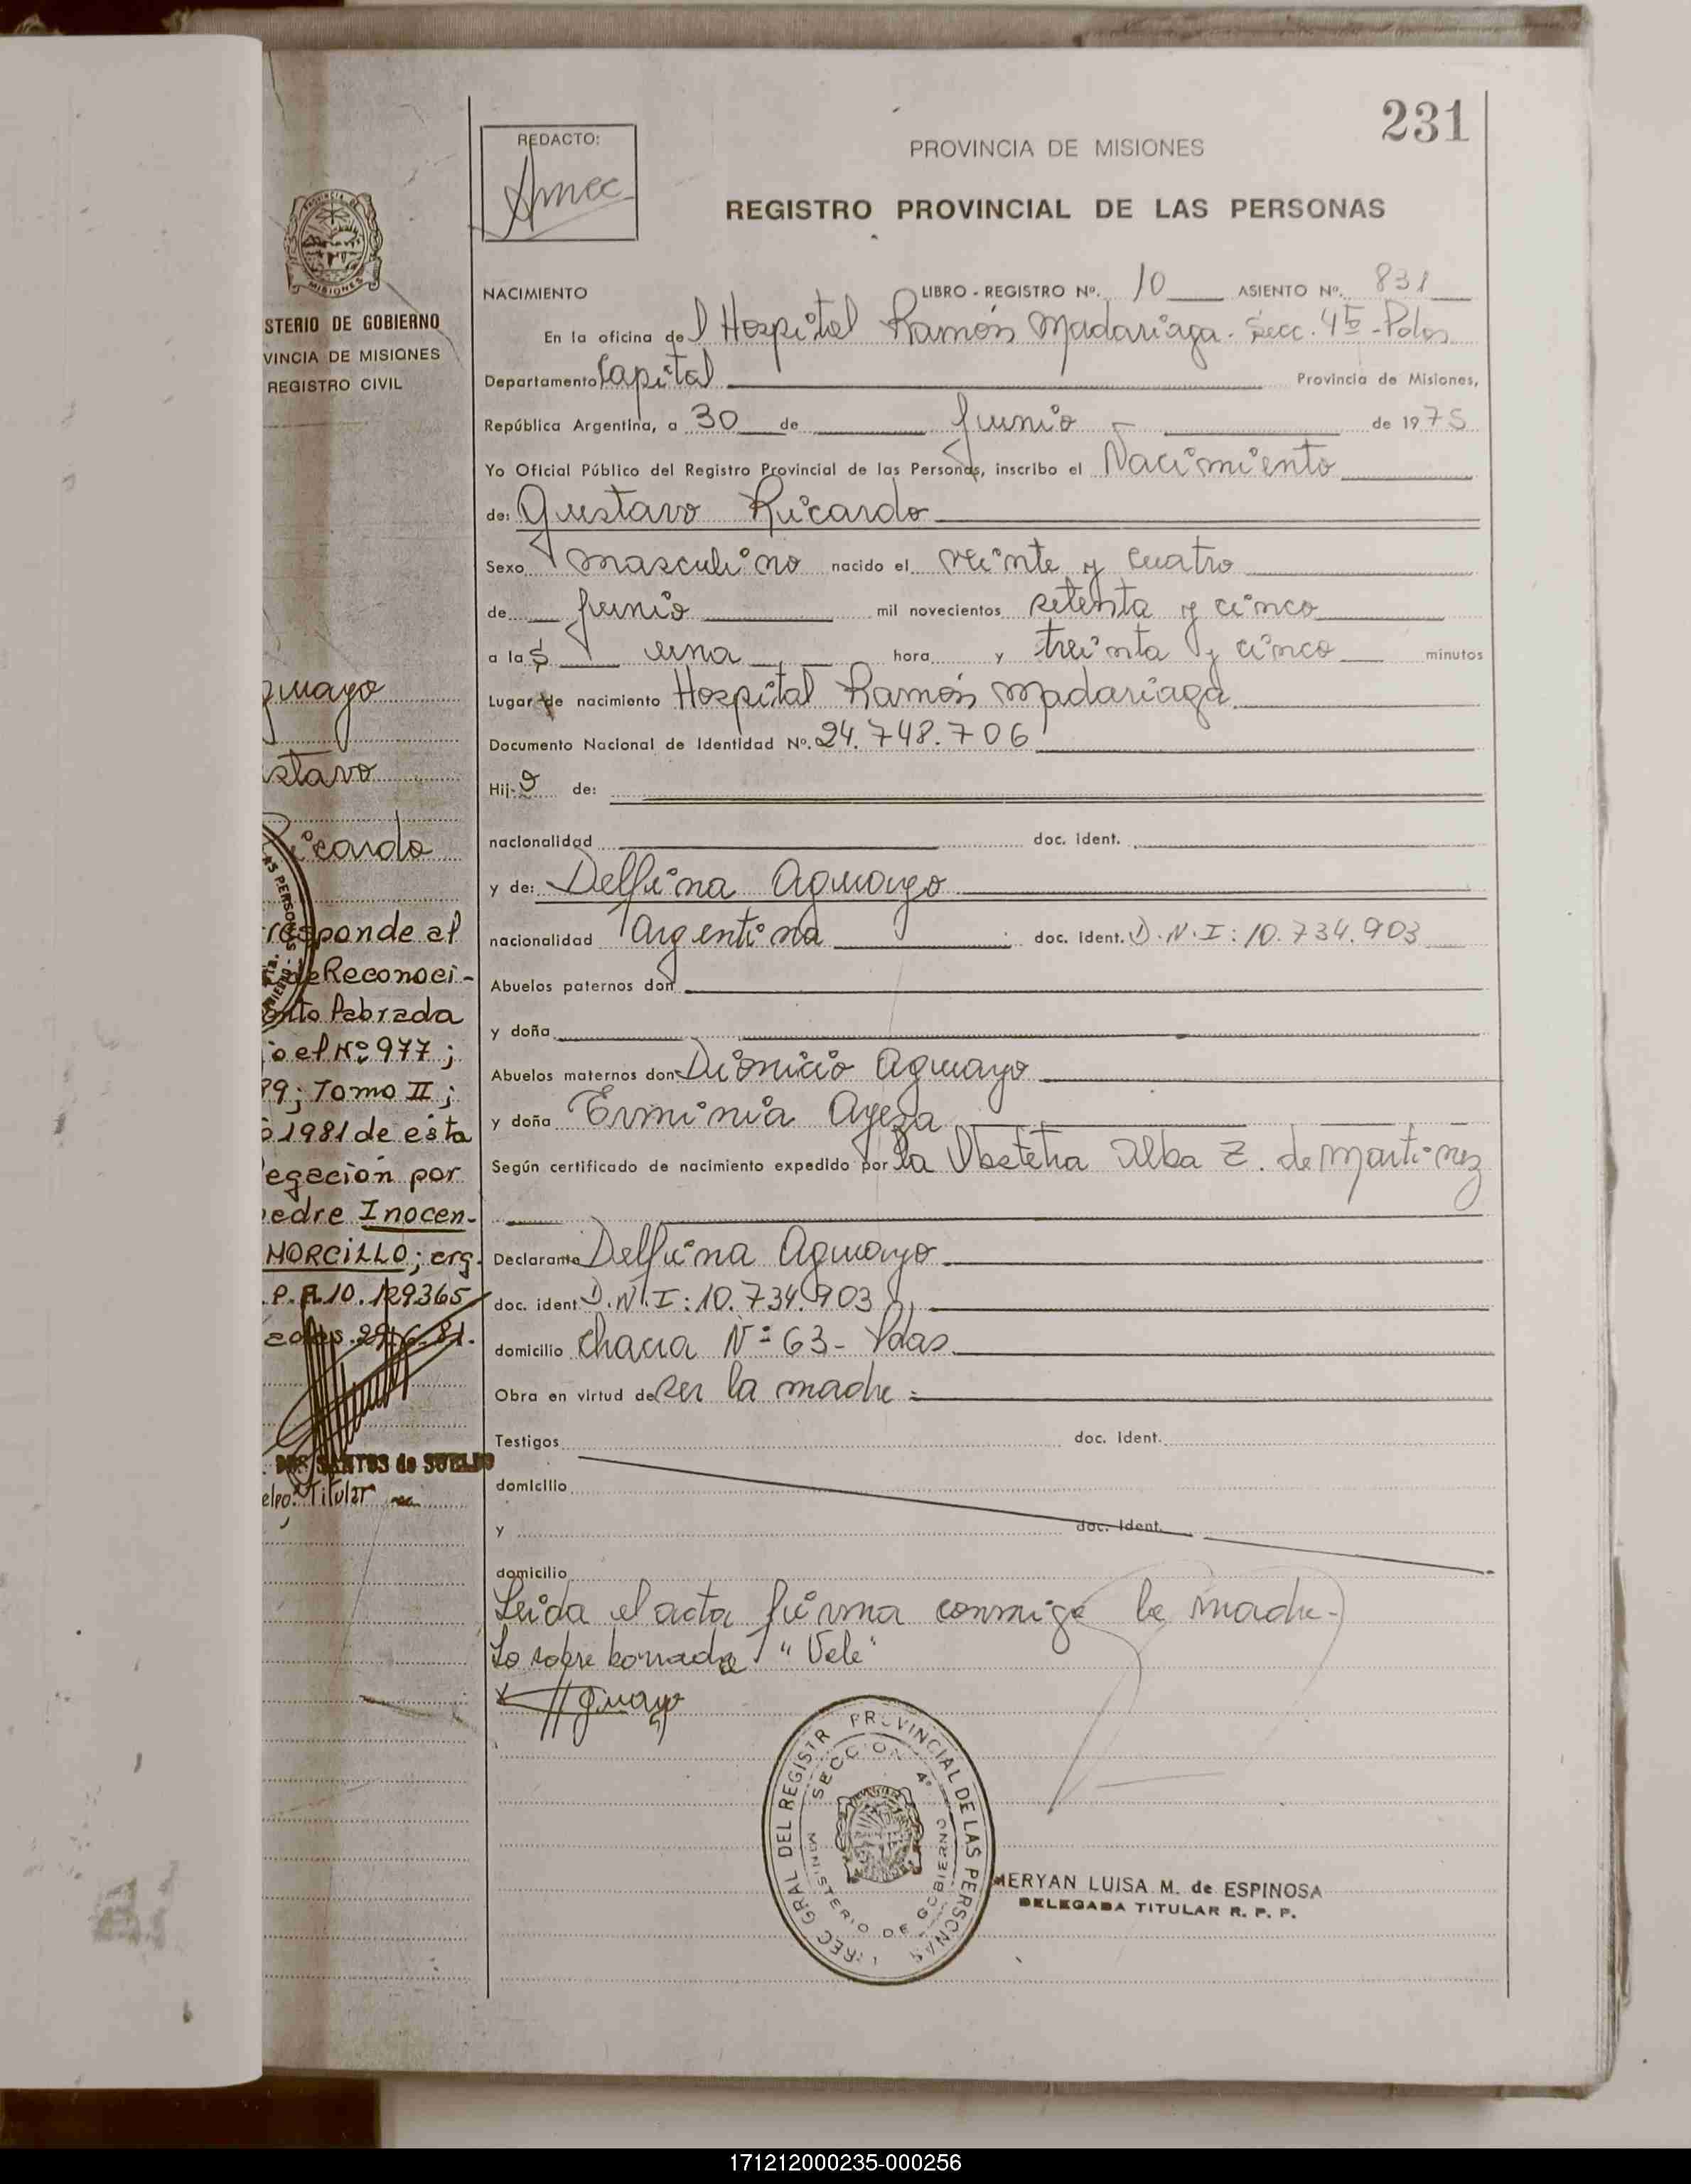 231
REDACTO:
PROVINCIA DE MISIONES
REGISTRO PROVINCIAL DE LAS PERSONAS
NACIMIENTO LIBRO - REGISTRO Nº. 10 ASIENTO Nº. 831
En la oficina del Hospital Ramón Madariaga. Secc. 4ta - Pdas
Departamento Capital Provincia de Misiones,
República Argentina, a 30 de Junio de 1975
Yo Oficial Público del Registro Provincial de las Personas, inscribo el Nacimiento
de: Gustavo Ricardo
Sexo masculino nacido el veinte y cuatro
de junio mil novecientos setenta y cinco
a la una hora y treinta y cinco minutos
Lugar de nacimiento Hospital Ramón Madariaga
Documento Nacional de Identidad Nº. 24.748.706
Hij-o de:
nacionalidad doc. ident.
y de: Delfina Aguayo
nacionalidad Argentina doc. ident. D.N.I: 10.734.903
Abuelos paternos don
y doña
Abuelos maternos don Dionicio Aguayo
y doña Erminia
Según certificado de nacimiento expedido por la Obstetra Alba Z. de Martinez
Declarante Delfina Aguayo
doc. ident D.N.I: 10.734.903
domicilio chacra Nº 63 - Pdas
Obra en virtud de ser la madre =
Testigos doc. ident.
domicilio
y doc. ident.
domicilio
Leida el acta firma conmigo la madre-
Lo sobre borrado "Vale"
Aguayo
DEL REGISTR PROVINCIAL DE LAS PERSONAS
SECCION 4º
MINISTERIO DE GOBIERNO
MERYAN LUISA M. de ESPINOSA
DELEGADA TITULAR R. P. P.
MISIONES
STERIO DE GOBIERNO
VINCIA DE MISIONES
REGISTRO CIVIL
guayo
stavo
icardo
responde al
de Reconoci-
ento labrada
o el Nº 977;
79; Tomo II;
o 1981 de esta
egación por
padre Inocen-
MORCILLO; arg.
10.129365
DOS SANTOS de SUELDO
Titular
171212000235-000256